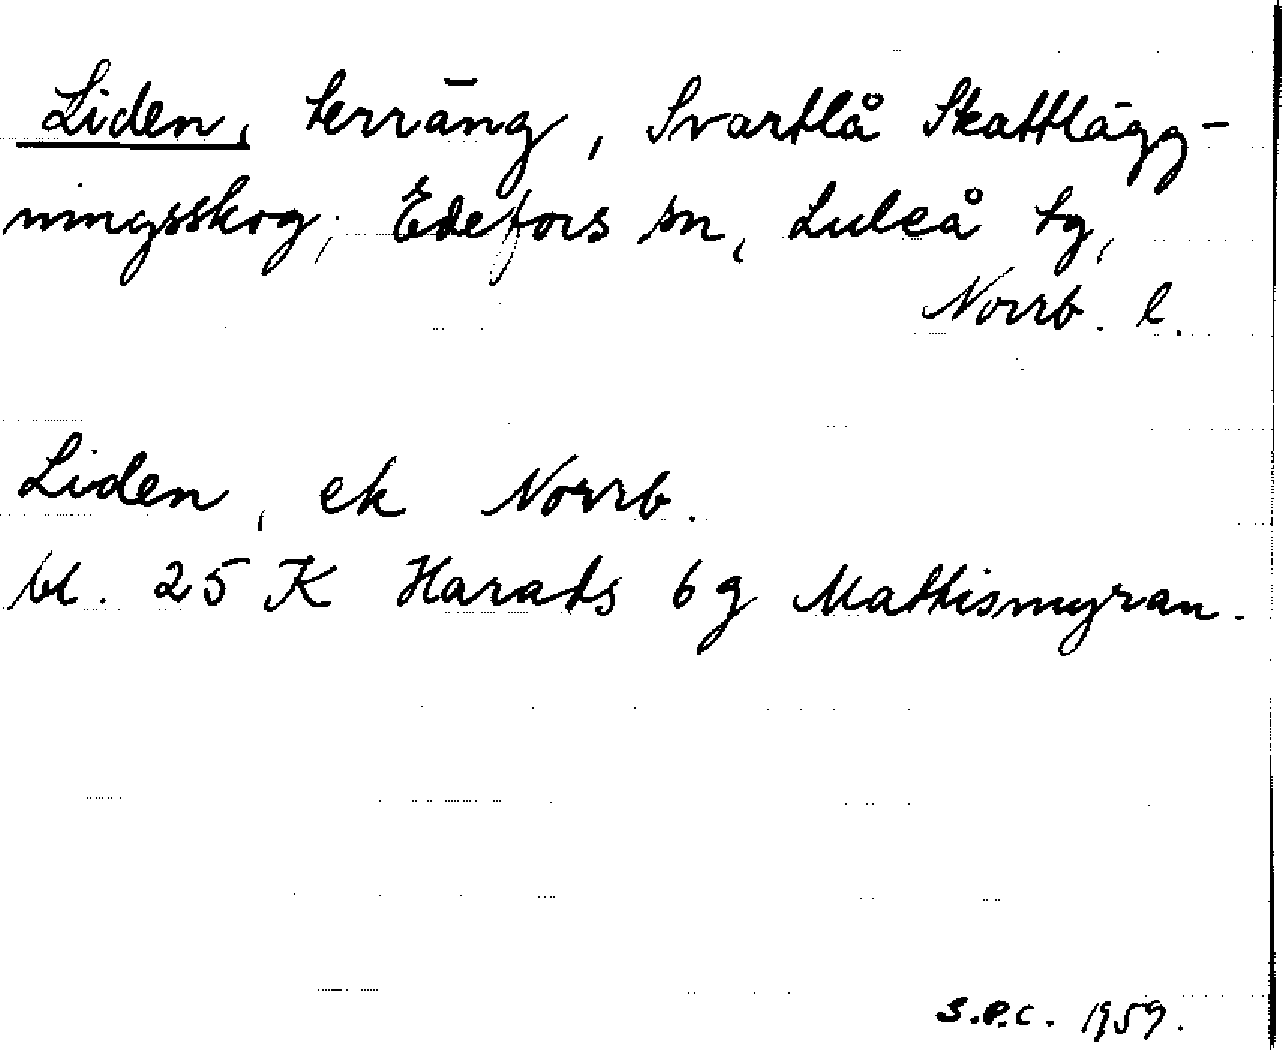 Liden, terräng, Svartlå Skattlägg-
ningsskog, Edefors sn, Luleå tg,
Norrb. l.
Liden, ek Norrb.
bl. 25 K Harads 6 g Mattismyran.
S.P.C. 1959.